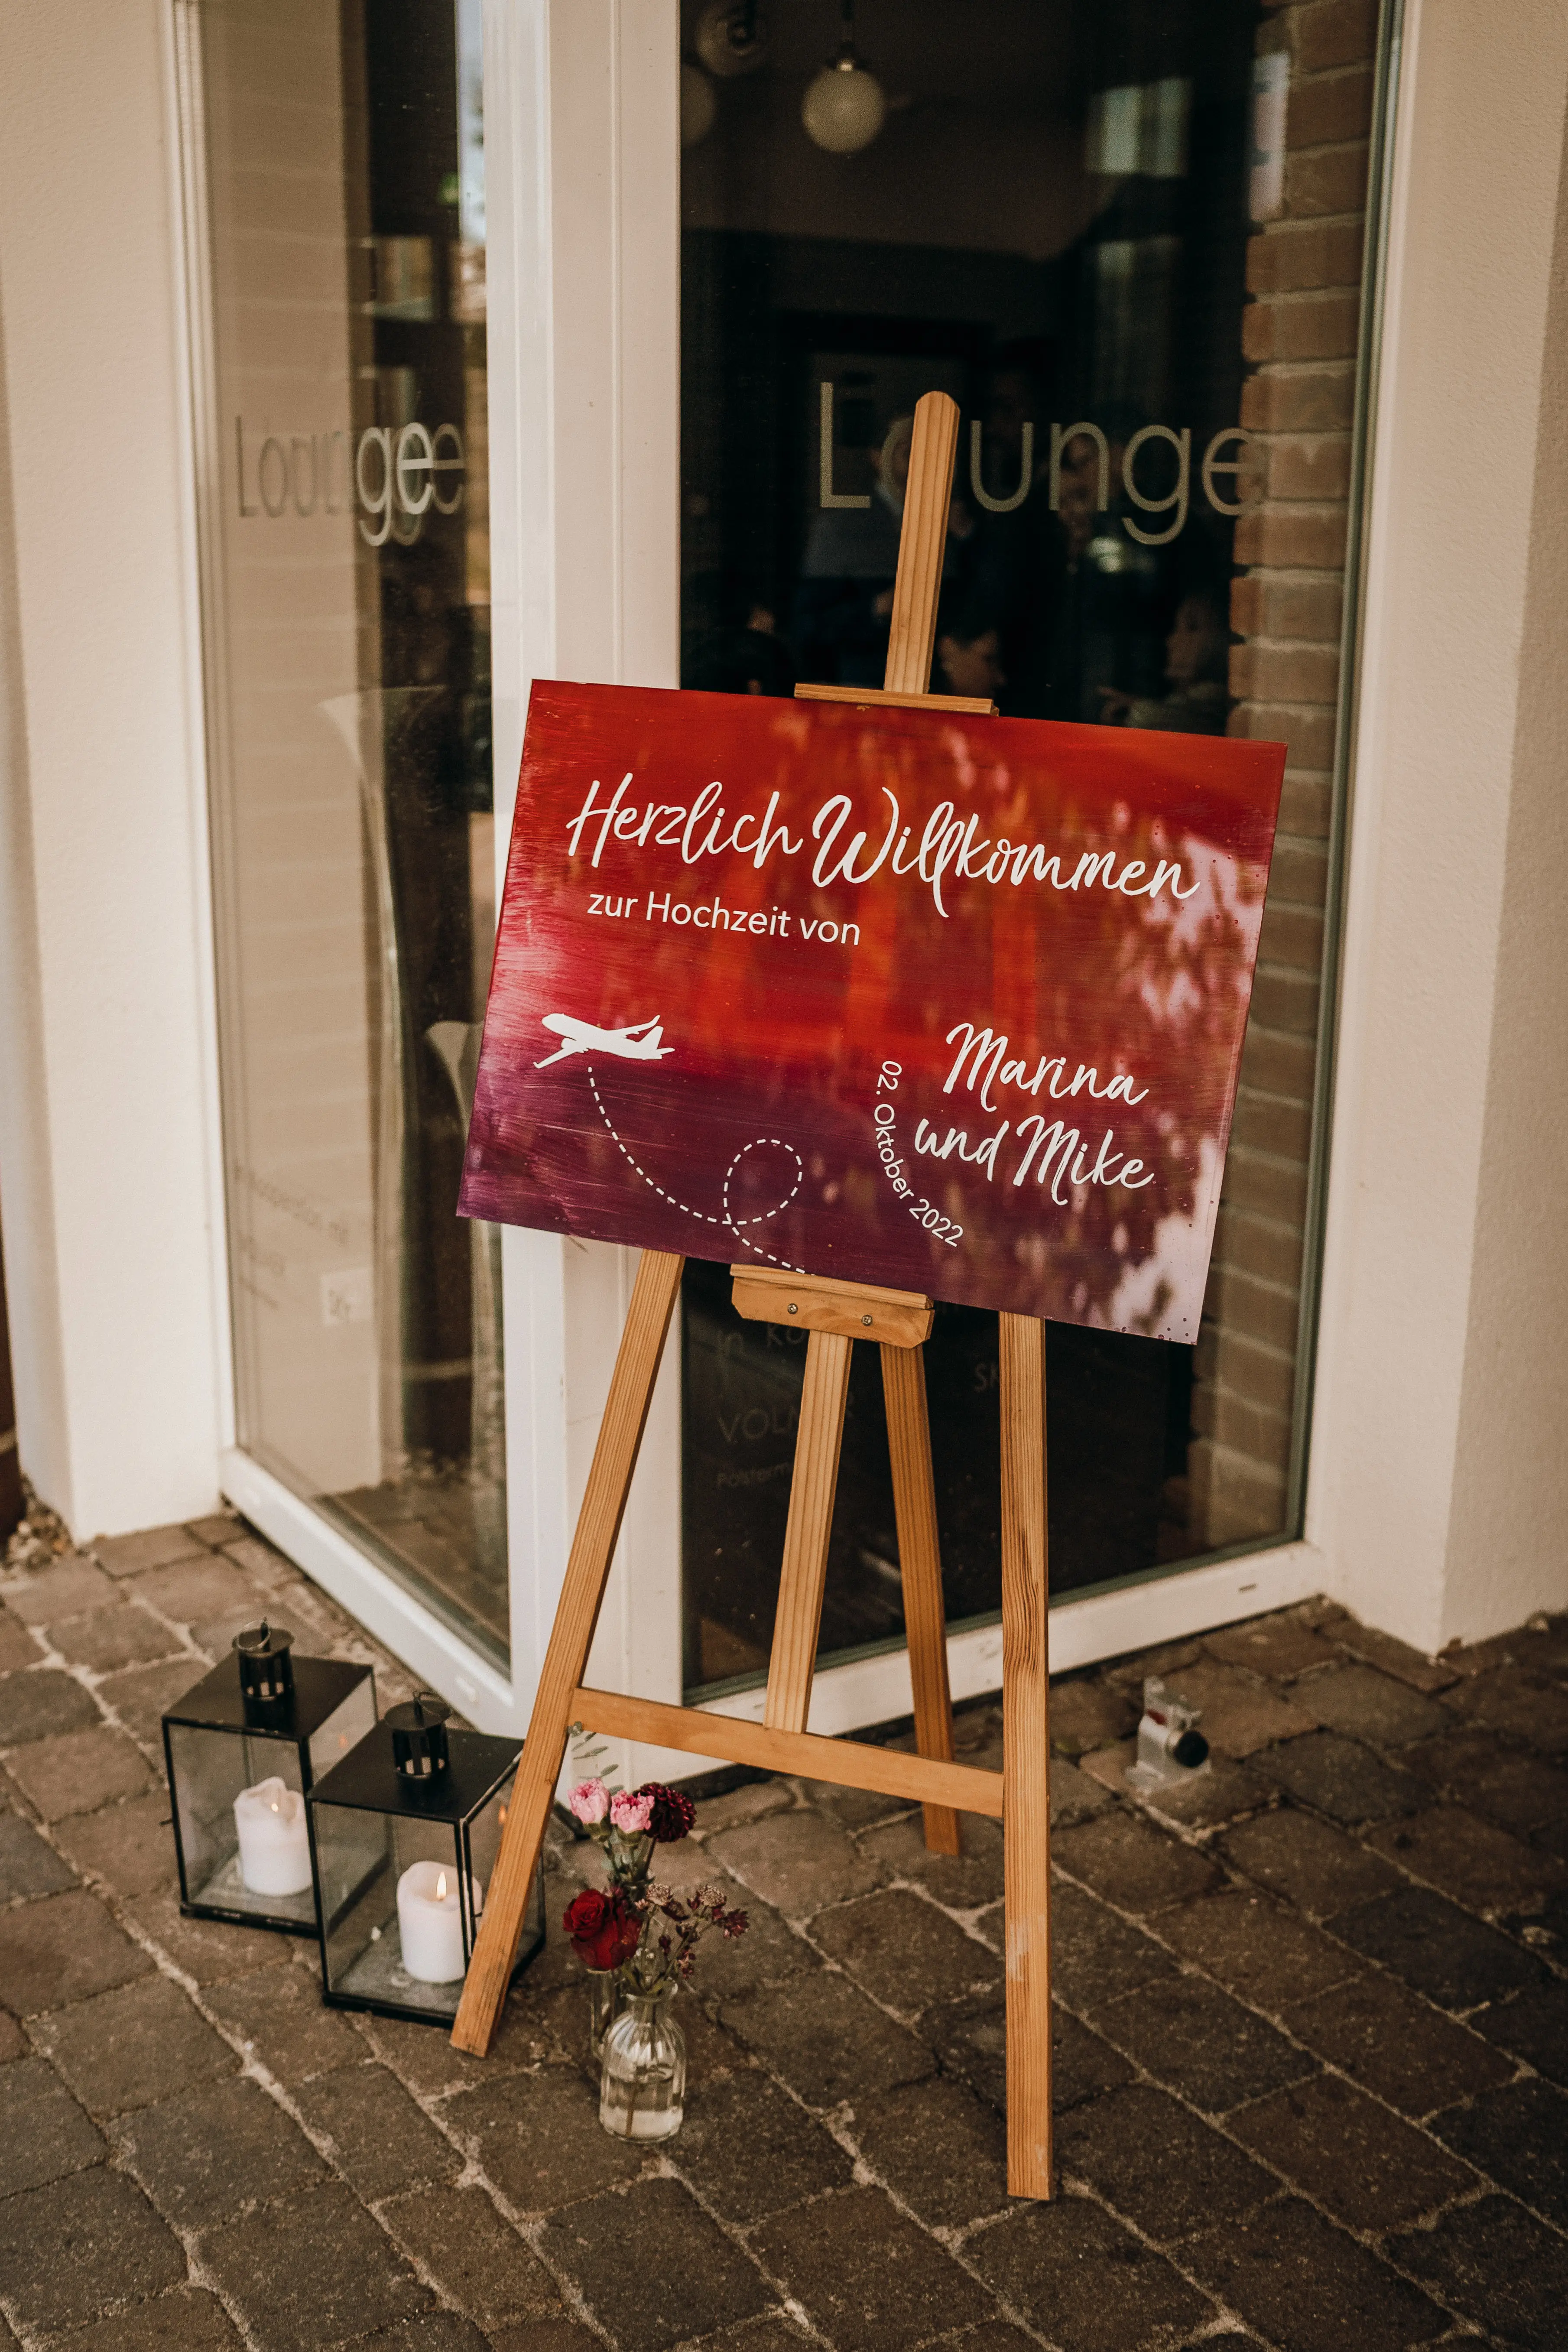 Lounge
Lounge
Herzlich Willkommen
zur Hochzeit von
Marina
und Mike
02. Oktober 2022